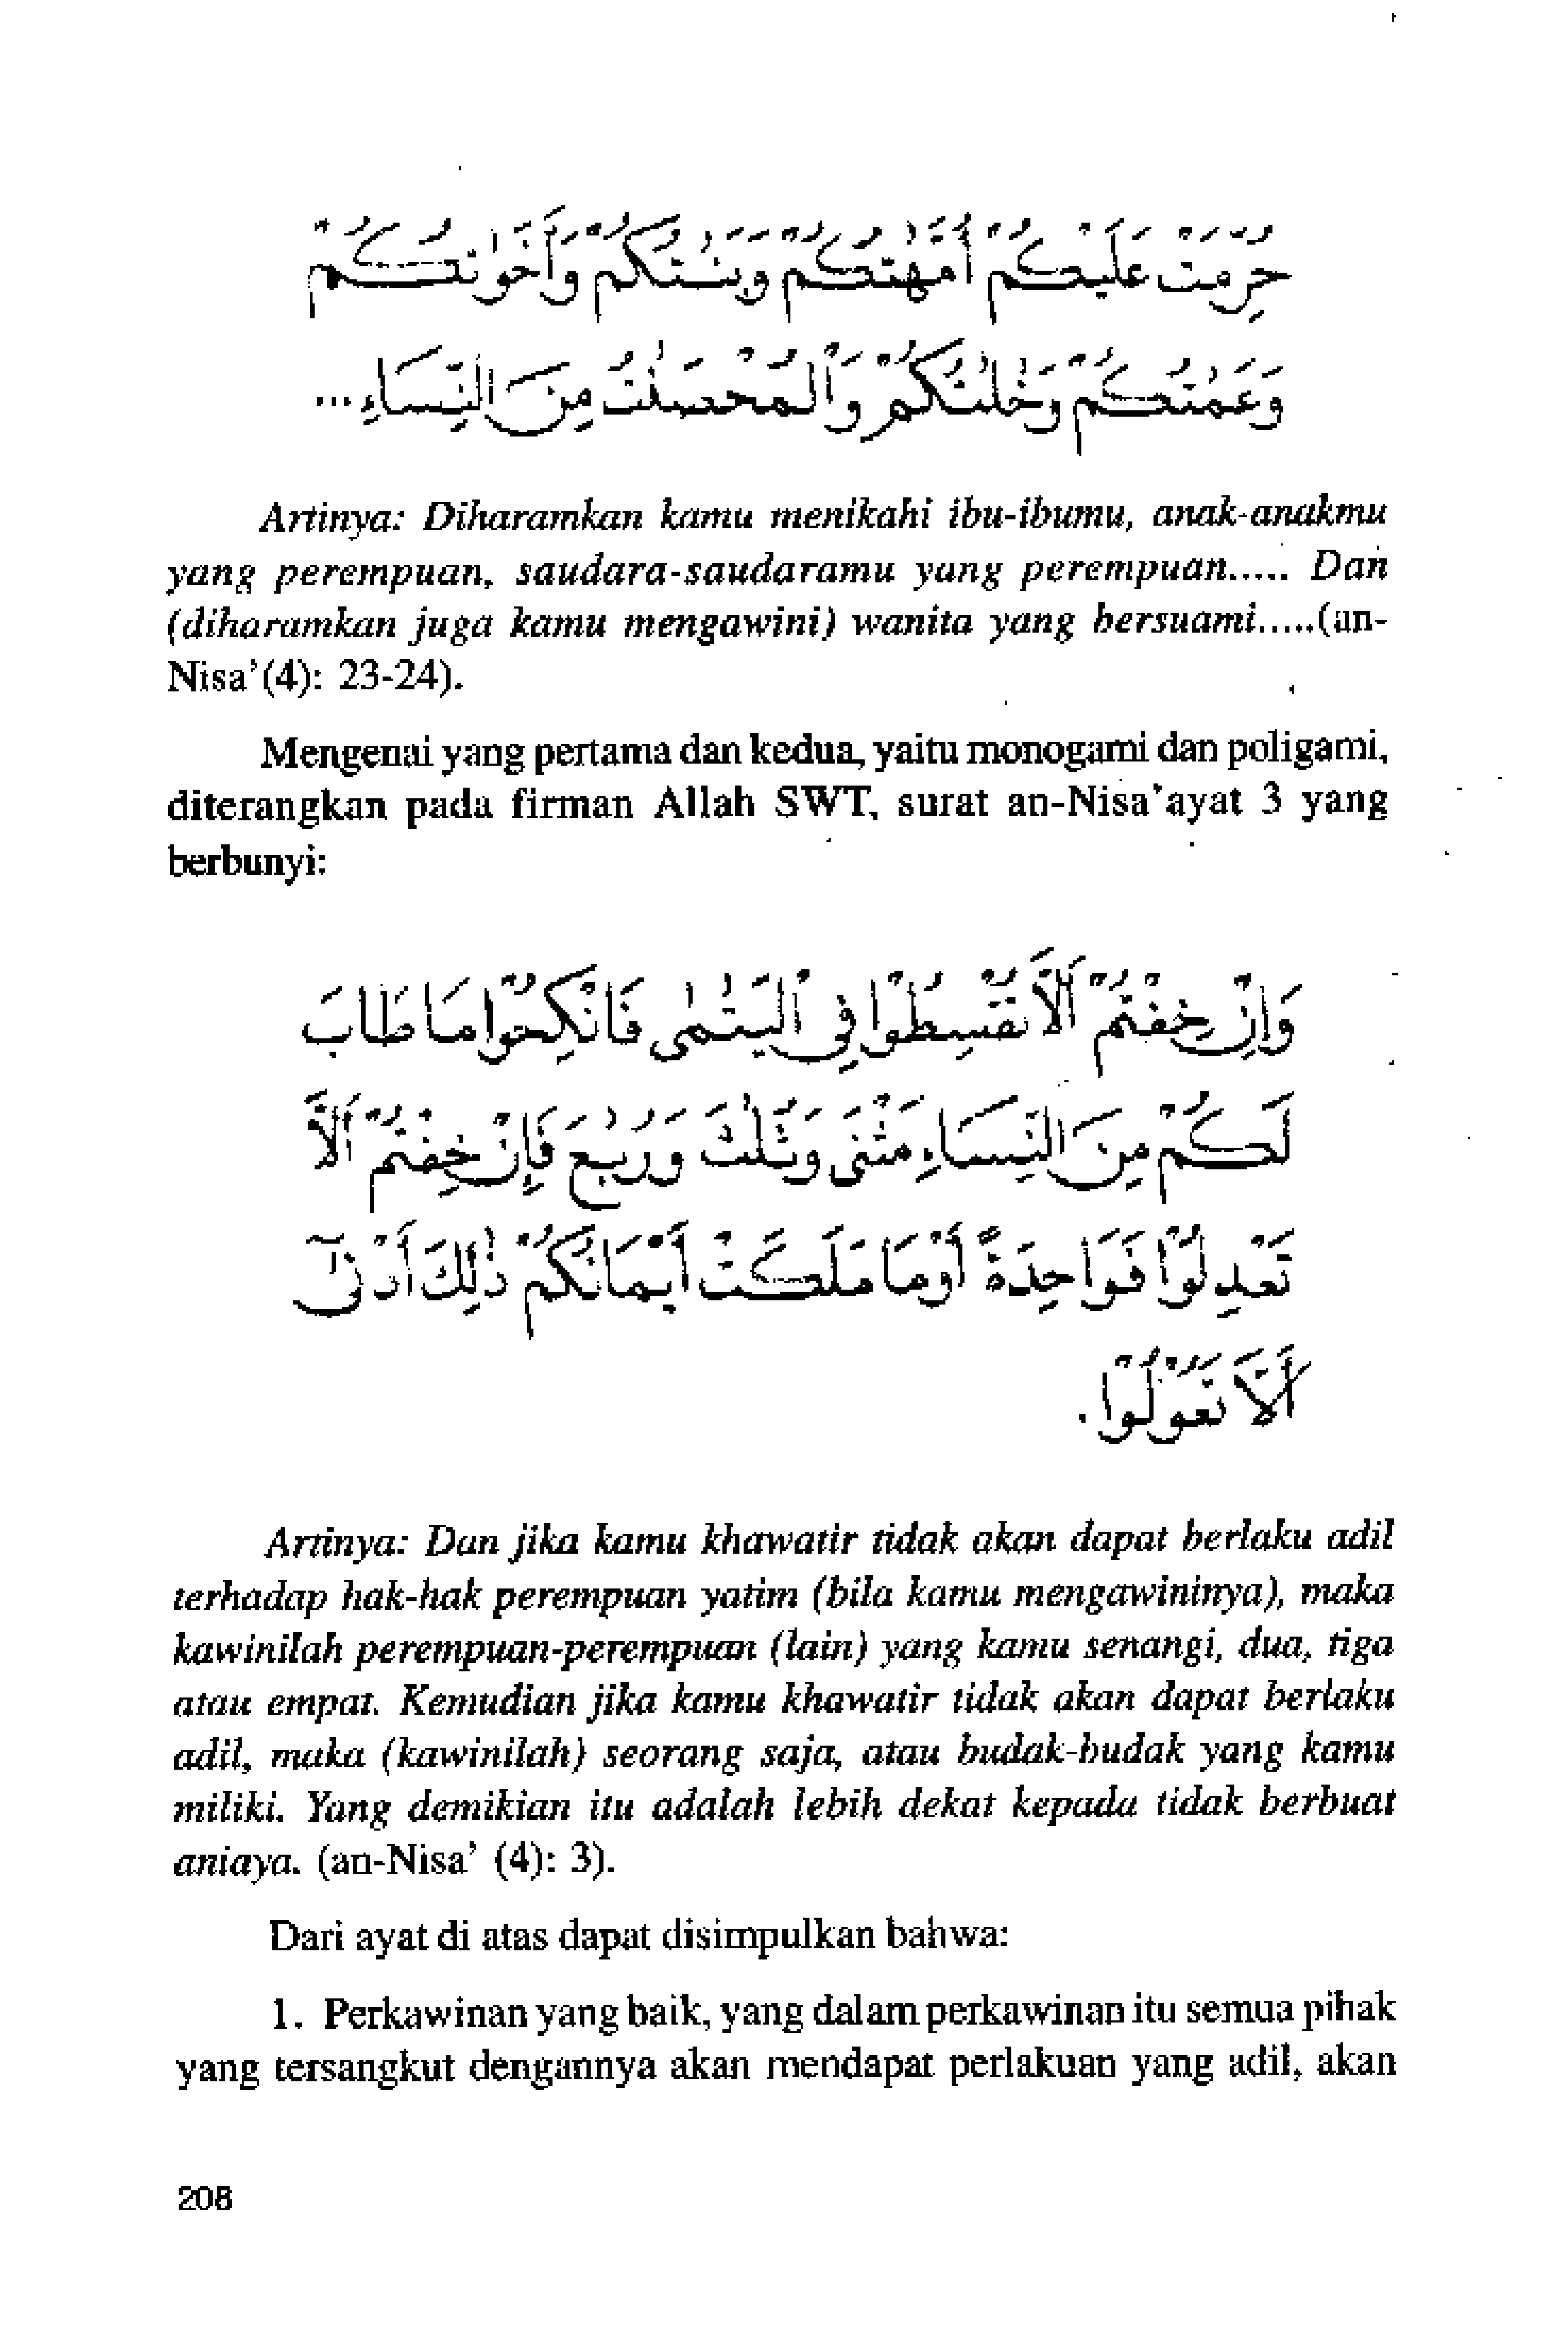 حُرِّمَتْ عَلَيْكُمْ أُمَّهٰتُكُمْ وَبَنٰتُكُمْ وَأَخَوٰتُكُمْ
وَعَمّٰتُكُمْ وَخٰلٰتُكُمْ وَالْمُحْصَنٰتُ مِنَ النِّسَاءِ ...
Artinya: Diharamkan kamu menikahi ibu-ibumu, anak-anakmu
yang perempuan, saudara-saudaramu yang perempuan..... Dan
(diharamkan juga kamu mengawini) wanita yang bersuami.....(an-
Nisa'(4): 23-24).
Mengenai yang pertama dan kedua, yaitu monogami dan poligami,
diterangkan pada firman Allah SWT, surat an-Nisa'ayat 3 yang
berbunyi:
وَاِنْ خِفْتُمْ اَلَّا تُقْسِطُوْا فِى الْيَتٰمٰى فَانْكِحُوْا مَا طَابَ
لَكُمْ مِنَ النِّسَاءِ مَثْنٰى وَثُلٰثَ وَرُبٰعَ فَإِنْ خِفْتُمْ اَلَّا
تَعْدِلُوْا فَوَاحِدَةً أَوْ مَا مَلَكَتْ أَيْمَانُكُمْ ذٰلِكَ أَدْنٰى
اَلَّا تَعُوْلُوْا .
Artinya: Dan jika kamu khawatir tidak akan dapat berlaku adil
terhadap hak-hak perempuan yatim (bila kamu mengawininya), maka
kawinilah perempuan-perempuan (lain) yang kamu senangi, dua, tiga
atau empat. Kemudian jika kamu khawatir tidak akan dapat berlaku
adil, maka (kawinilah) seorang saja, atau budak-budak yang kamu
miliki. Yang demikian itu adalah lebih dekat kepada tidak berbuat
aniaya. (an-Nisa' (4): 3).
Dari ayat di atas dapat disimpulkan bahwa:
1. Perkawinan yang baik, yang dalam perkawinan itu semua pihak
yang tersangkut dengannya akan mendapat perlakuan yang adil, akan
208